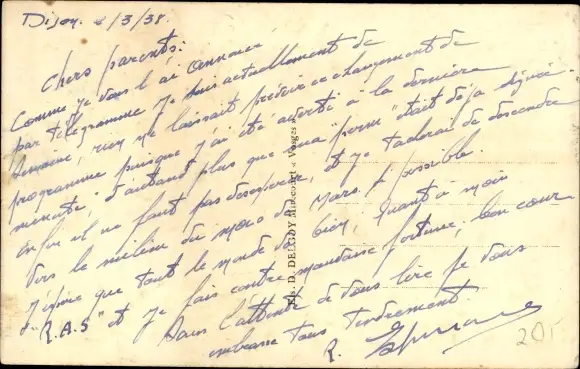 Dijon. 2/3/38.
Chers parents:
Comme je vous l'ai annoncé
par télégramme je suis actuellement de
semaine, rien ne laissait prévoir ce changement de
programme puisque j'ai été averti à la dernière
minute, d'autant plus que ma perm "était déjà signée".
enfin il ne faut pas désespérer, et je tacherai de descendre
vers le milieu du mois de Mars, si possible.
J'espère que tout le monde va bien, quant à moi
"R.A.S" et je fais contre mauvaise fortune, bon cœur
Dans l'attente de vous lire je vous
embrasse tous tendrement
R.
Ets. D. DELBOY Mirecourt - Vosges
205